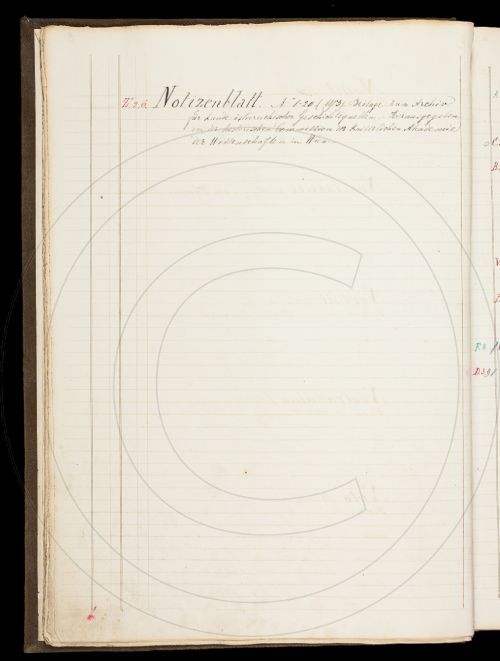 Notizenblatt. Nº 1-20. (1851) Beilage zum Archiv
für Kunde österreichischer Geschichtsquellen. Herausgegeben
von der historischen Commission der kaiserlichen Akademie
der Wissenschaften in Wien.